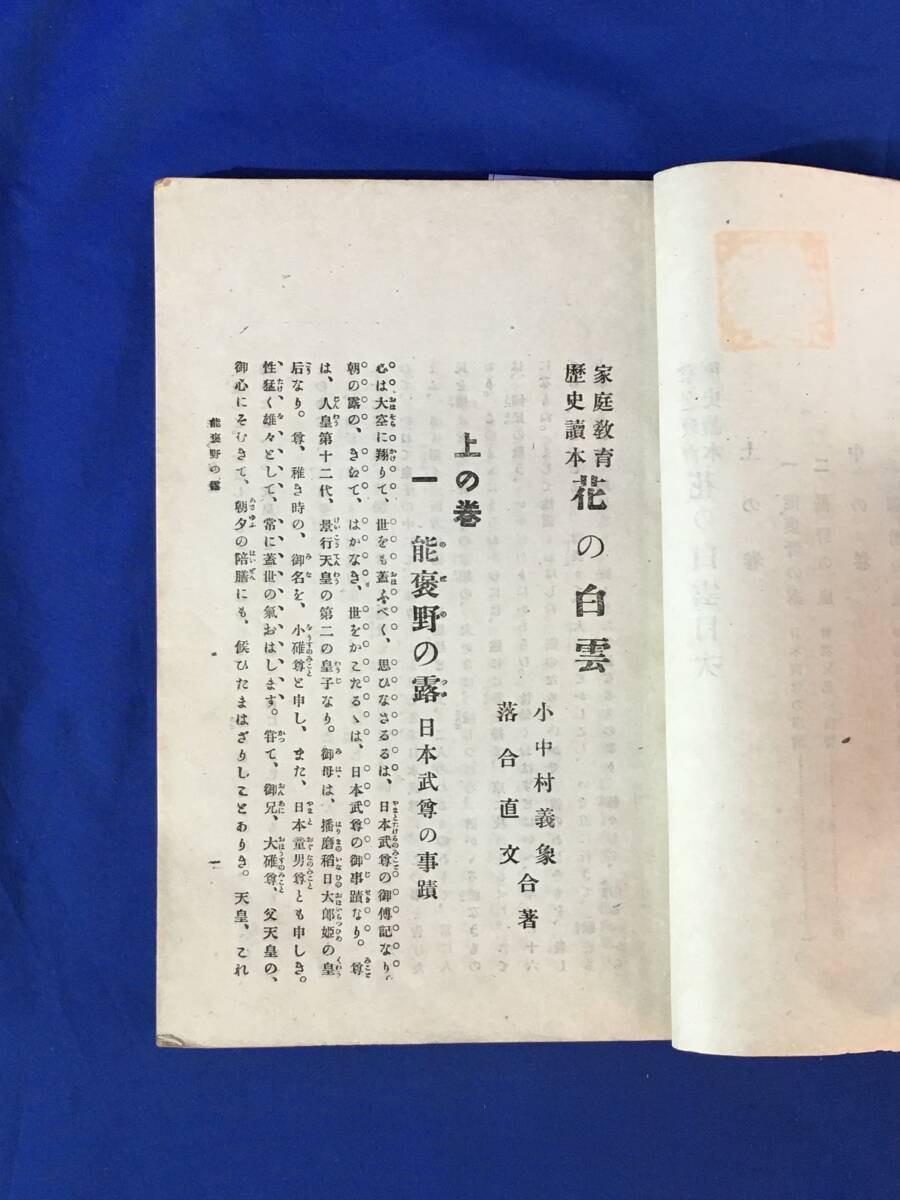 家庭敎育
歷史讀本
花の白雲
小中村義象
落合直文
合著
上の卷
一 能褒野の露 日本武尊の事蹟
心は大空に翔りて、世をも蓋ふべく、思ひなさるるは、日本武尊の御傳記なり。
朝の露の、きえて、はかなき、世をかこたるゝは、日本武尊の御事蹟なり。尊
は、人皇第十二代、景行天皇の第二の皇子なり。御母は、播磨稻日大郎姫の皇
后なり。尊、稚き時の、御名を、小碓尊と申し、また、日本童男尊とも申しき。
性猛く雄々として、常に蓋世の氣おはします。甞て、御兄、大碓尊、父天皇の、
御心にそむきて、朝夕の陪膳にも、候ひたまはざりしことありき。天皇、これ
能褒野の露
一